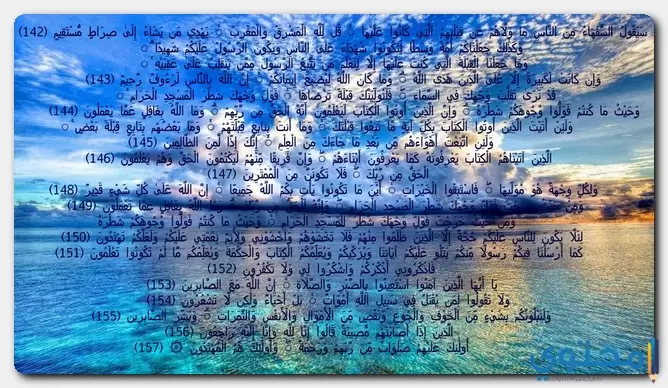 سَيَقُولُ السُّفَهَاءُ مِنَ النَّاسِ مَا وَلَّاهُمْ عَن قِبْلَتِهِمُ الَّتِي كَانُوا عَلَيْهَا ۚ قُل لِّلَّهِ الْمَشْرِقُ وَالْمَغْرِبُ ۚ يَهْدِي مَن يَشَاءُ إِلَىٰ صِرَاطٍ مُّسْتَقِيمٍ (142)
وَكَذَٰلِكَ جَعَلْنَاكُمْ أُمَّةً وَسَطًا لِّتَكُونُوا شُهَدَاءَ عَلَى النَّاسِ وَيَكُونَ الرَّسُولُ عَلَيْكُمْ شَهِيدًا ۗ
وَمَا جَعَلْنَا الْقِبْلَةَ الَّتِي كُنتَ عَلَيْهَا إِلَّا لِنَعْلَمَ مَن يَتَّبِعُ الرَّسُولَ مِمَّن يَنقَلِبُ عَلَىٰ عَقِبَيْهِ ۚ
وَإِن كَانَتْ لَكَبِيرَةً إِلَّا عَلَى الَّذِينَ هَدَى اللَّهُ ۗ وَمَا كَانَ اللَّهُ لِيُضِيعَ إِيمَانَكُمْ ۚ إِنَّ اللَّهَ بِالنَّاسِ لَرَءُوفٌ رَّحِيمٌ (143)
قَدْ نَرَىٰ تَقَلُّبَ وَجْهِكَ فِي السَّمَاءِ ۖ فَلَنُوَلِّيَنَّكَ قِبْلَةً تَرْضَاهَا ۚ فَوَلِّ وَجْهَكَ شَطْرَ الْمَسْجِدِ الْحَرَامِ ۚ
وَحَيْثُ مَا كُنتُمْ فَوَلُّوا وُجُوهَكُمْ شَطْرَهُ ۗ وَإِنَّ الَّذِينَ أُوتُوا الْكِتَابَ لَيَعْلَمُونَ أَنَّهُ الْحَقُّ مِن رَّبِّهِمْ ۗ وَمَا اللَّهُ بِغَافِلٍ عَمَّا يَعْمَلُونَ (144)
وَلَئِنْ أَتَيْتَ الَّذِينَ أُوتُوا الْكِتَابَ بِكُلِّ آيَةٍ مَّا تَبِعُوا قِبْلَتَكَ ۚ وَمَا أَنتَ بِتَابِعٍ قِبْلَتَهُمْ ۚ وَمَا بَعْضُهُم بِتَابِعٍ قِبْلَةَ بَعْضٍ ۚ
وَلَئِنِ اتَّبَعْتَ أَهْوَاءَهُم مِّن بَعْدِ مَا جَاءَكَ مِنَ الْعِلْمِ ۙ إِنَّكَ إِذًا لَّمِنَ الظَّالِمِينَ (145)
الَّذِينَ آتَيْنَاهُمُ الْكِتَابَ يَعْرِفُونَهُ كَمَا يَعْرِفُونَ أَبْنَاءَهُمْ ۖ وَإِنَّ فَرِيقًا مِّنْهُمْ لَيَكْتُمُونَ الْحَقَّ وَهُمْ يَعْلَمُونَ (146)
الْحَقُّ مِن رَّبِّكَ ۖ فَلَا تَكُونَنَّ مِنَ الْمُمْتَرِينَ (147)
وَلِكُلٍّ وِجْهَةٌ هُوَ مُوَلِّيهَا ۖ فَاسْتَبِقُوا الْخَيْرَاتِ ۚ أَيْنَ مَا تَكُونُوا يَأْتِ بِكُمُ اللَّهُ جَمِيعًا ۚ إِنَّ اللَّهَ عَلَىٰ كُلِّ شَيْءٍ قَدِيرٌ (148)
وَمِنْ فَوَلِّ وَجْهَكَ شَطْرَ الْمَسْجِدِ الْحَرَامِ ۖ بِغَافِلٍ عَمَّا تَعْمَلُونَ (149)
وَمِنْ حَيْثُ خَرَجْتَ فَوَلِّ وَجْهَكَ شَطْرَ الْمَسْجِدِ الْحَرَامِ ۚ وَحَيْثُ مَا كُنتُمْ فَوَلُّوا وُجُوهَكُمْ شَطْرَهُ
لِئَلَّا يَكُونَ لِلنَّاسِ عَلَيْكُمْ حُجَّةٌ إِلَّا الَّذِينَ ظَلَمُوا مِنْهُمْ فَلَا تَخْشَوْهُمْ وَاخْشَوْنِي وَلِأُتِمَّ نِعْمَتِي عَلَيْكُمْ وَلَعَلَّكُمْ تَهْتَدُونَ (150)
كَمَا أَرْسَلْنَا فِيكُمْ رَسُولًا مِّنكُمْ يَتْلُو عَلَيْكُمْ آيَاتِنَا وَيُزَكِّيكُمْ وَيُعَلِّمُكُمُ الْكِتَابَ وَالْحِكْمَةَ وَيُعَلِّمُكُم مَّا لَمْ تَكُونُوا تَعْلَمُونَ (151)
فَاذْكُرُونِي أَذْكُرْكُمْ وَاشْكُرُوا لِي وَلَا تَكْفُرُونِ (152)
يَا أَيُّهَا الَّذِينَ آمَنُوا اسْتَعِينُوا بِالصَّبْرِ وَالصَّلَاةِ ۚ إِنَّ اللَّهَ مَعَ الصَّابِرِينَ (153)
وَلَا تَقُولُوا لِمَن يُقْتَلُ فِي سَبِيلِ اللَّهِ أَمْوَاتٌ ۚ بَلْ أَحْيَاءٌ وَلَٰكِن لَّا تَشْعُرُونَ (154)
وَلَنَبْلُوَنَّكُم بِشَيْءٍ مِّنَ الْخَوْفِ وَالْجُوعِ وَنَقْصٍ مِّنَ الْأَمْوَالِ وَالْأَنفُسِ وَالثَّمَرَاتِ ۗ وَبَشِّرِ الصَّابِرِينَ (155)
الَّذِينَ إِذَا أَصَابَتْهُم مُّصِيبَةٌ قَالُوا إِنَّا لِلَّهِ وَإِنَّا إِلَيْهِ رَاجِعُونَ (156)
أُولَٰئِكَ عَلَيْهِمْ صَلَوَاتٌ مِّن رَّبِّهِمْ وَرَحْمَةٌ ۖ وَأُولَٰئِكَ هُمُ الْمُهْتَدُونَ ۞ (157)